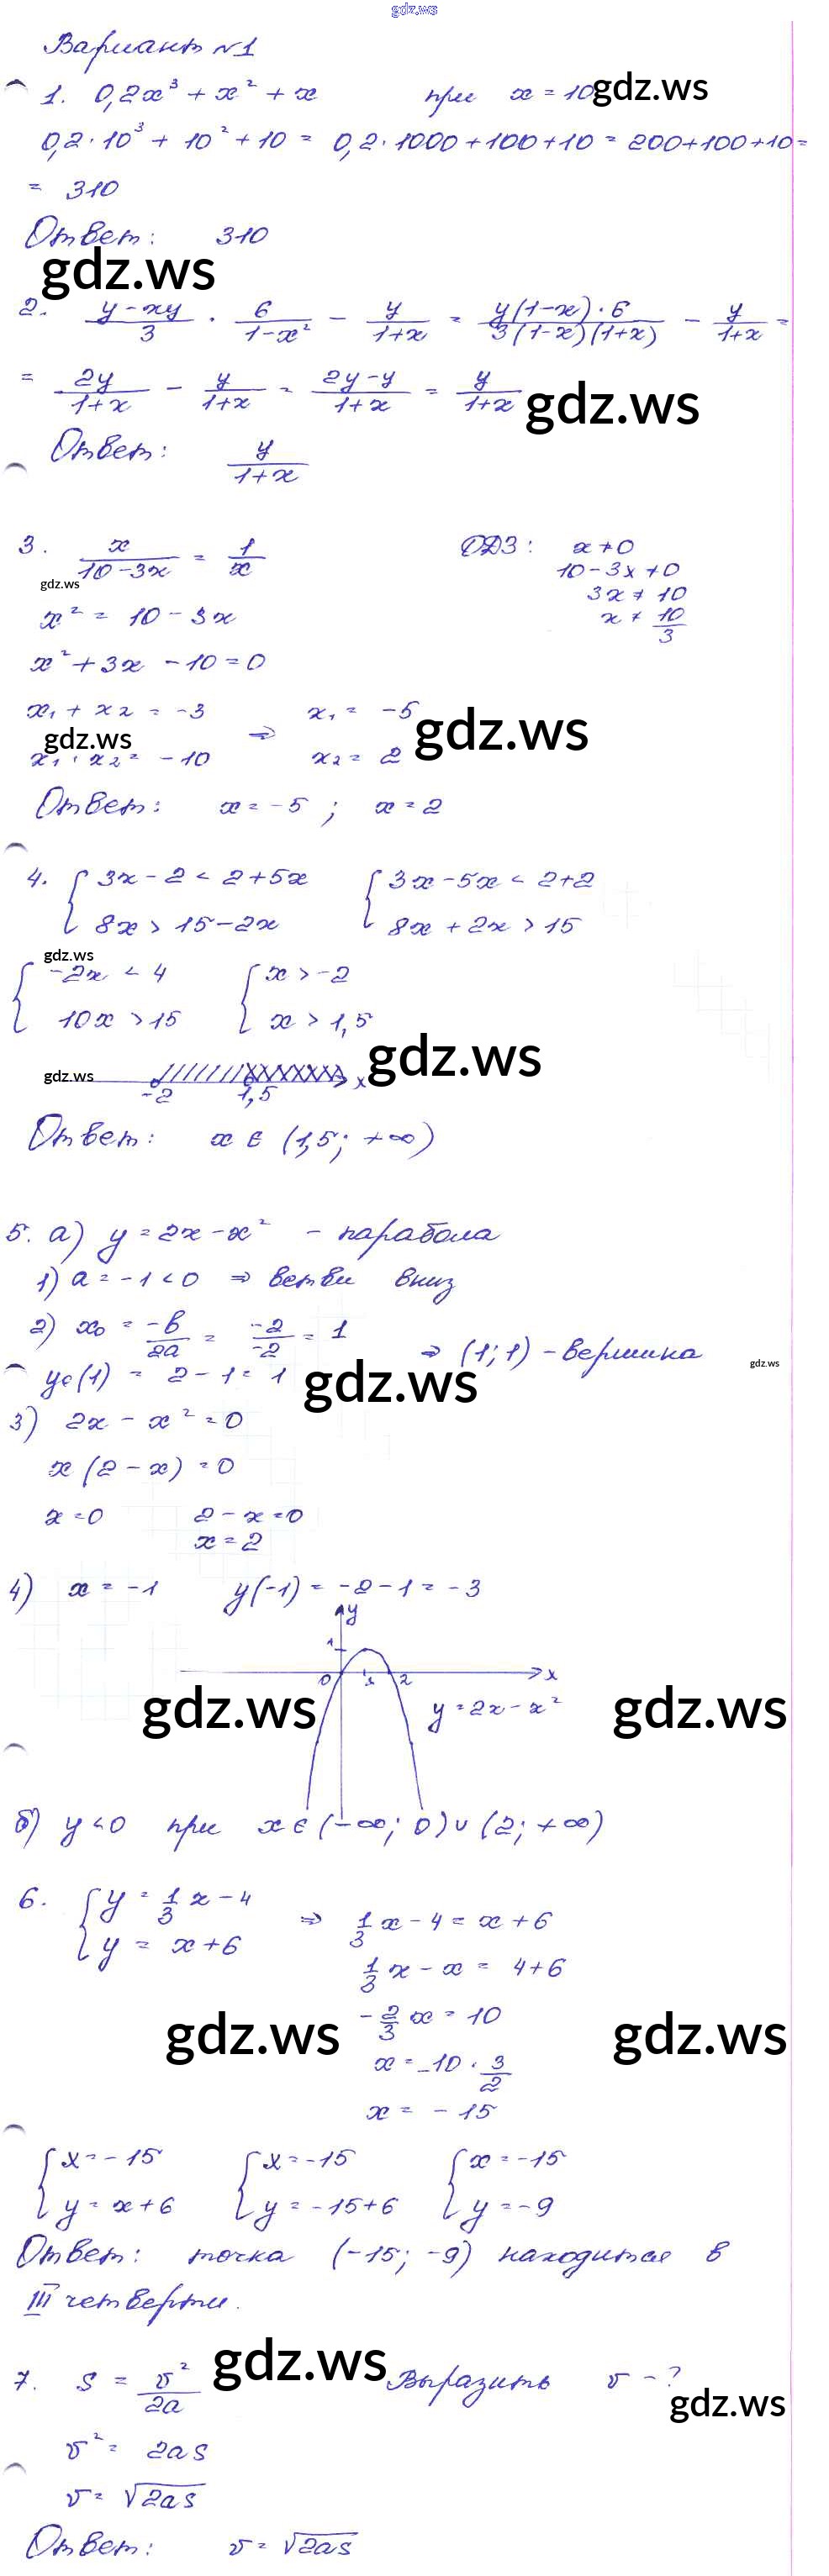 gdz.ws
Вариант №1
1. 0,2x³ + x² + x при x = 10 gdz.ws
0,2·10³ + 10² + 10 = 0,2·1000+100+10 = 200+100+10 =
= 310
Ответ: 310
gdz.ws
2. (y-xy)/3 · 6/(1-x²) - y/(1+x) = (y(1-x)·6)/(3(1-x)(1+x)) - y/(1+x) =
= 2y/(1+x) - y/(1+x) = (2y-y)/(1+x) = y/(1+x) gdz.ws
Ответ: y/(1+x)
3. x/(10-3x) = 1/x ОДЗ: x≠0
gdz.ws 10-3x≠0
x² = 10-3x 3x ≠ 10
x ≠ 10/3
x² + 3x - 10 = 0
x₁ + x₂ = -3 ⇒ x₁ = -5 gdz.ws
gdz.ws
x₁ · x₂ = -10 x₂ = 2
Ответ: x = -5 ; x = 2
4. { 3x-2 < 2+5x { 3x-5x < 2+2
8x > 15-2x 8x + 2x > 15
gdz.ws
{ -2x < 4 { x > -2
10x > 15 x > 1,5
gdz.ws
gdz.ws x
-2 1,5
Ответ: x ∈ (1,5; +∞)
5. а) y = 2x - x² - парабола
1) a = -1 < 0 ⇒ ветви вниз
2) x₀ = -b/2a = -2/-2 = 1
⇒ (1; 1) - вершина gdz.ws
y₀(1) = 2-1 = 1 gdz.ws
3) 2x - x² = 0
x(2-x) = 0
x = 0 2-x = 0
x = 2
4) x = -1 y(-1) = -2-1 = -3
y
1
0 1 2 x
gdz.ws y = 2x - x² gdz.ws
б) y < 0 при x ∈ (-∞; 0) ∪ (2; +∞)
6. { y = 1/3 x - 4 ⇒ 1/3 x - 4 = x + 6
y = x + 6
1/3 x - x = 4+6
-2/3 x = 10
gdz.ws gdz.ws
x = -10 · 3/2
x = -15
{ x = -15 { x = -15 { x = -15
y = x+6 y = -15+6 y = -9
Ответ: точка (-15; -9) находится в
III четверти.
7. S = v²/2a gdz.ws Выразить v - ?
gdz.ws
v² = 2as
v = √2as
Ответ: v = √2as